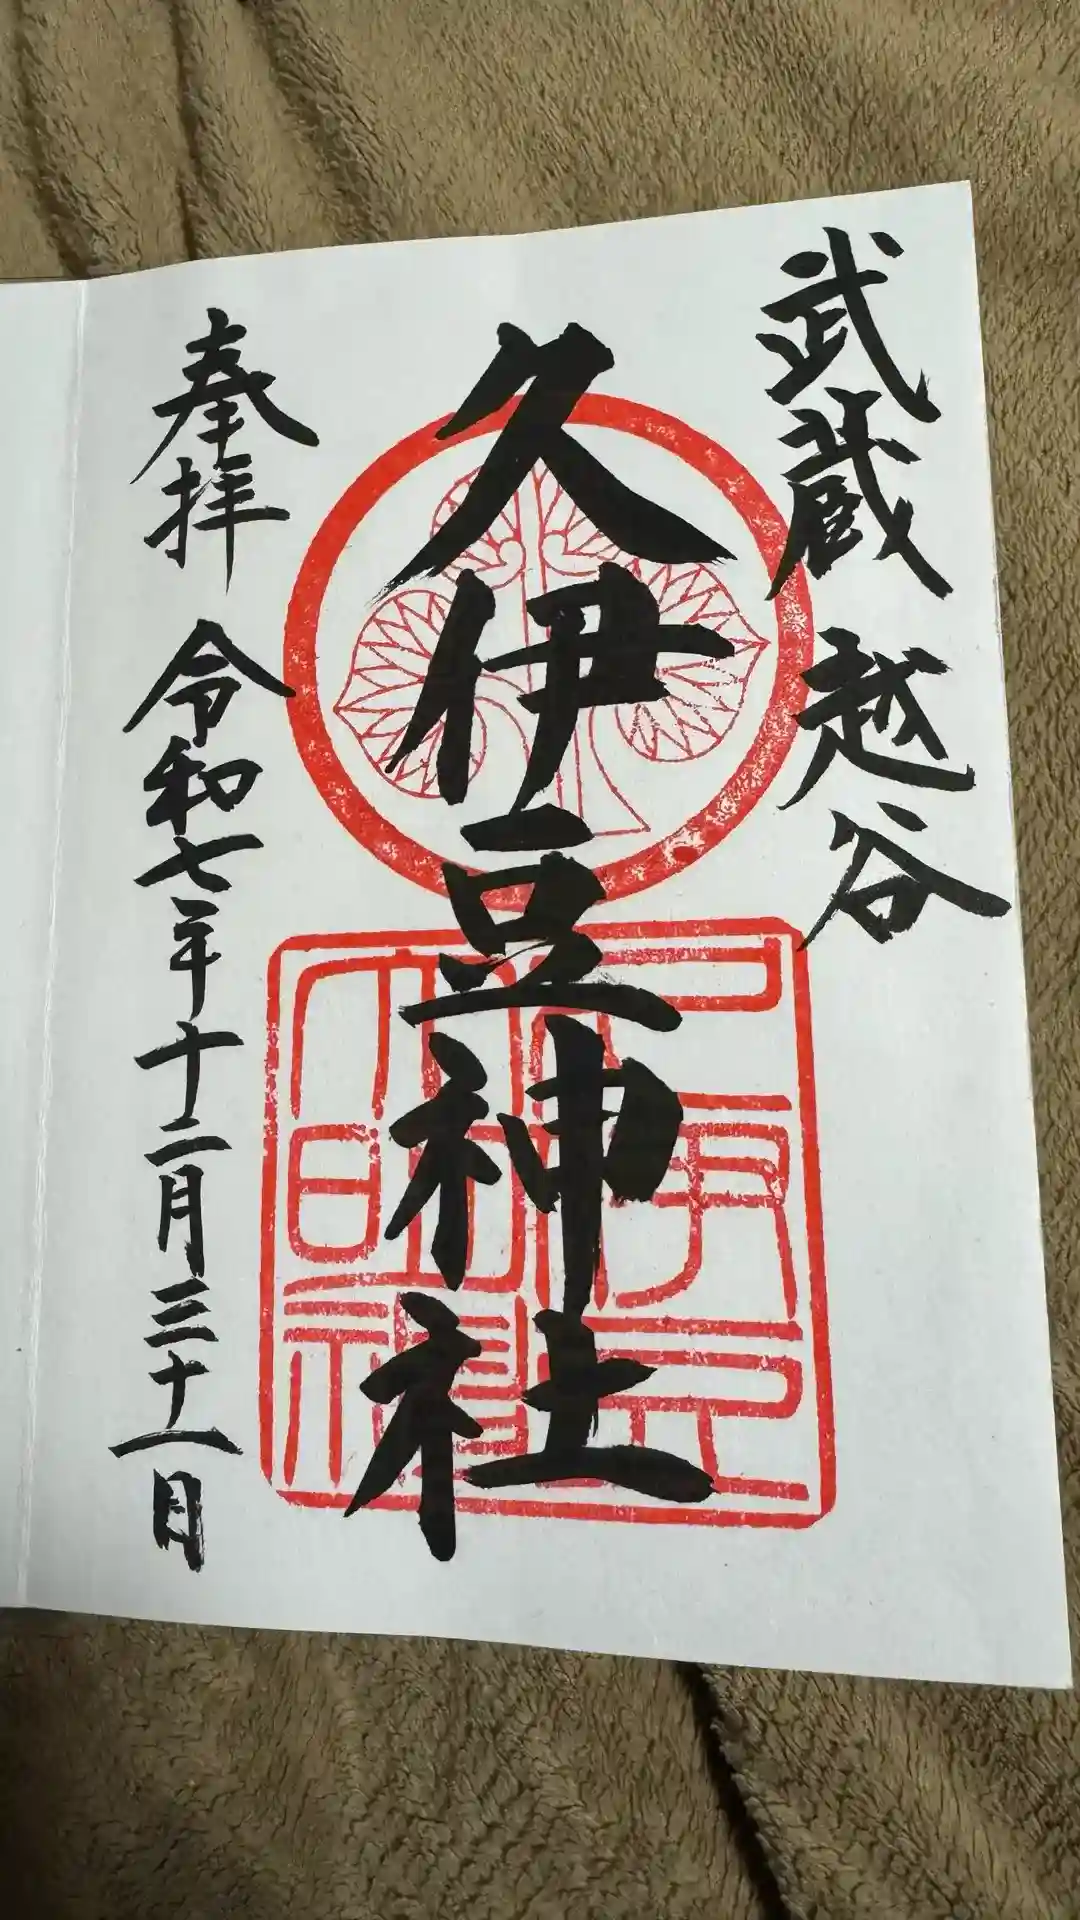 武蔵 越谷
久伊豆神社
奉拝 令和七年十二月三十一日
久伊豆
大明神